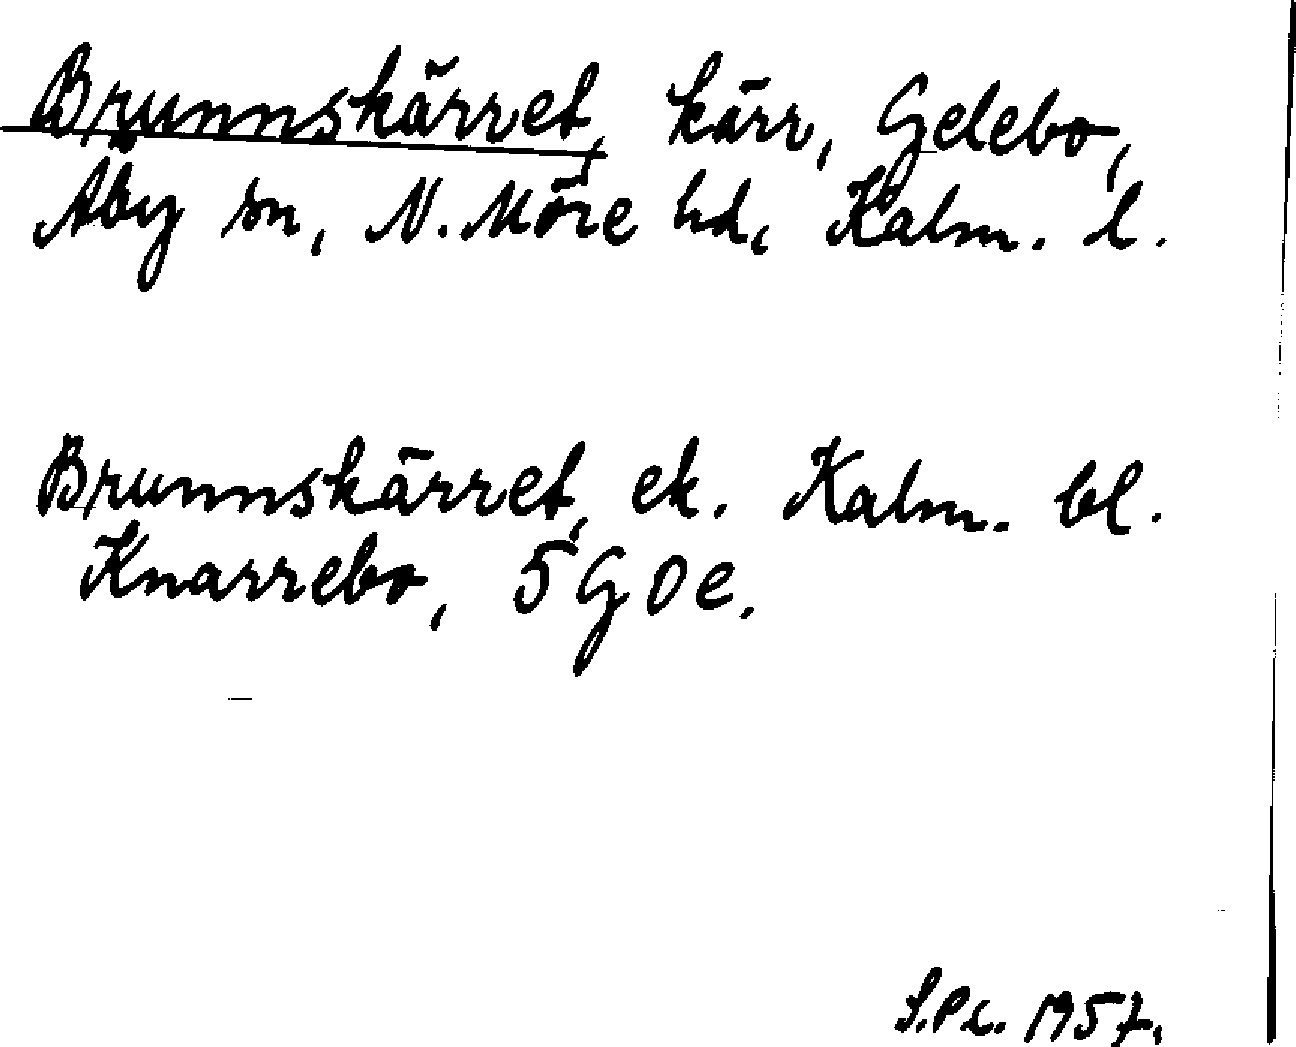 Brunnskärret, kärr, Gelebo,
Åby sn, N. Möre hd, Kalm. l.
Brunnskärret, ek. Kalm. bl.
Knarrebo, 5 G 0 e.
1957.